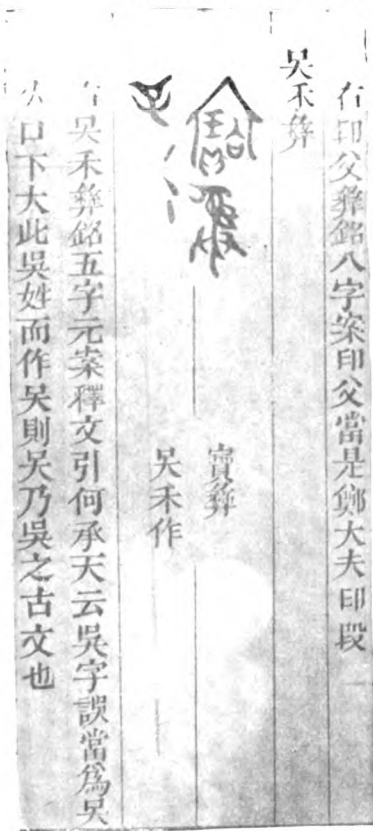 右印父彝銘八字案印父當是鄭大夫印段
吴禾彝
寶彝
吴禾作
右吴禾彝銘五字元案釋文引何承天云吳字誤當爲吴
从口下大此吳姓而作吴則吴乃吳之古文也